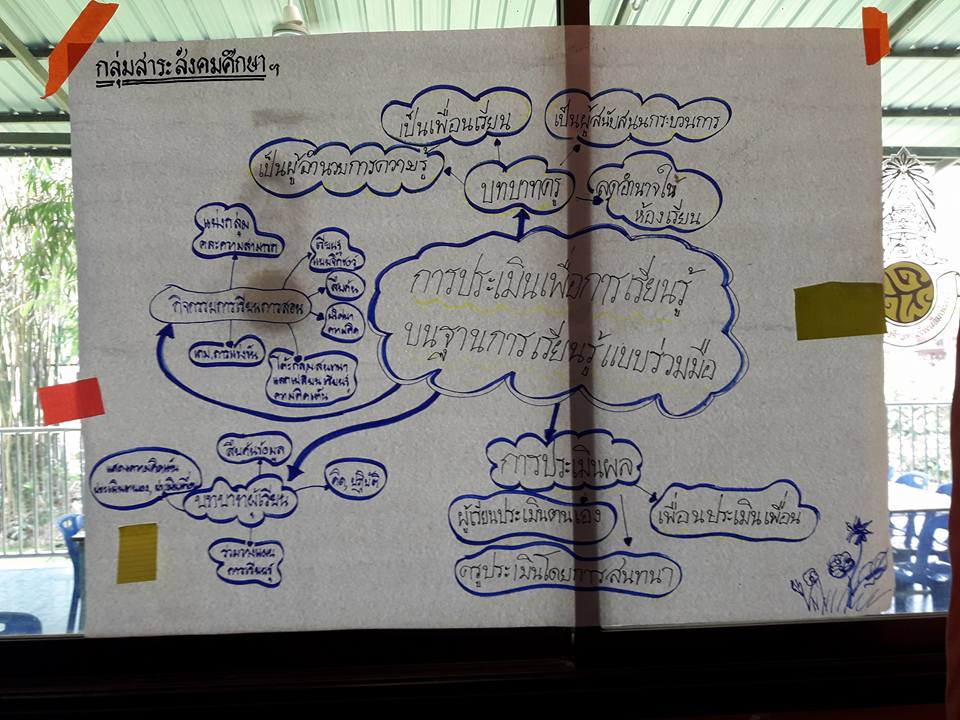 กลุ่มสาระสังคมศึกษาฯ
เป็นเพื่อนเรียน
เป็นผู้สนับสนุนกระบวนการ
เป็นผู้อำนวยการความรู้
บทบาทครู
ลดอำนาจใน
ห้องเรียน
แบ่งกลุ่ม
คละความสามารถ
เรียนรู้
แบบจิ๊กซอว์
สืบค้น
กิจกรรมการเรียนการสอน
พัฒนา
ความคิด
เกม, การแข่งขัน
โต๊ะกลม สนทนา
แลกเปลี่ยนเรียนรู้
ความคิดเห็น
การประเมินเพื่อการเรียนรู้
บนฐานการเรียนรู้แบบร่วมมือ
สืบค้นข้อมูล
แสดงความคิดเห็น
ประเมินตนเอง,
บทบาทผู้เรียน
คิด, ปฏิบัติ
ร่วมวางแผน
การเรียนรู้
การประเมินผล
ผู้เรียนประเมินตนเอง
เพื่อนประเมินเพื่อน
ครูประเมินโดยการสนทนา